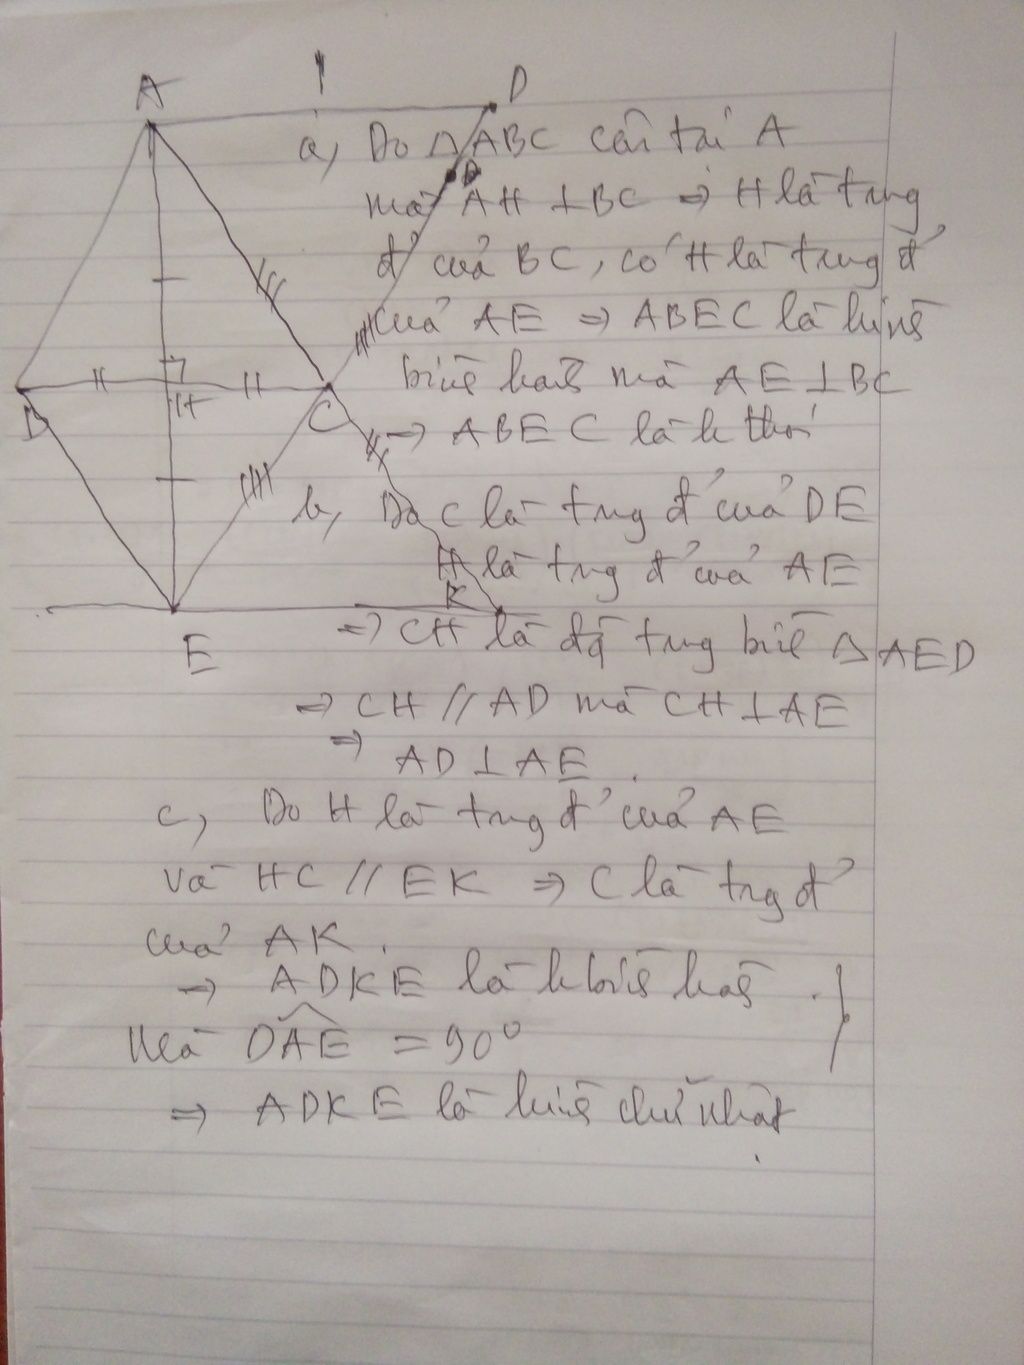 A
D
a, Do △ABC cân tại A
mà AH ⊥ BC ⇒ H là trung
đ' của BC, có H là trung đ'
của AE ⇒ ABEC là hình
bình hành mà AE ⊥ BC
B
H
C
⇒ ABEC là h thoi
b, Do C là trng đ' của DE
H là trng đ' của AE
K
E
⇒ CH là đg trung bình △AED
⇒ CH // AD mà CH ⊥ AE
⇒ AD ⊥ AE.
c, Do H là trng đ' của AE
và HC // EK ⇒ C là trg đ'
của AK.
⇒ ADKE là h bình hành
Mà DAE = 90°
⇒ ADKE là hình chữ nhật